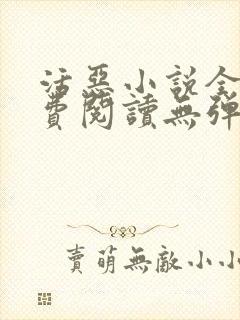 活惡小說全
費閱讀無彈
賣萌無敵小小